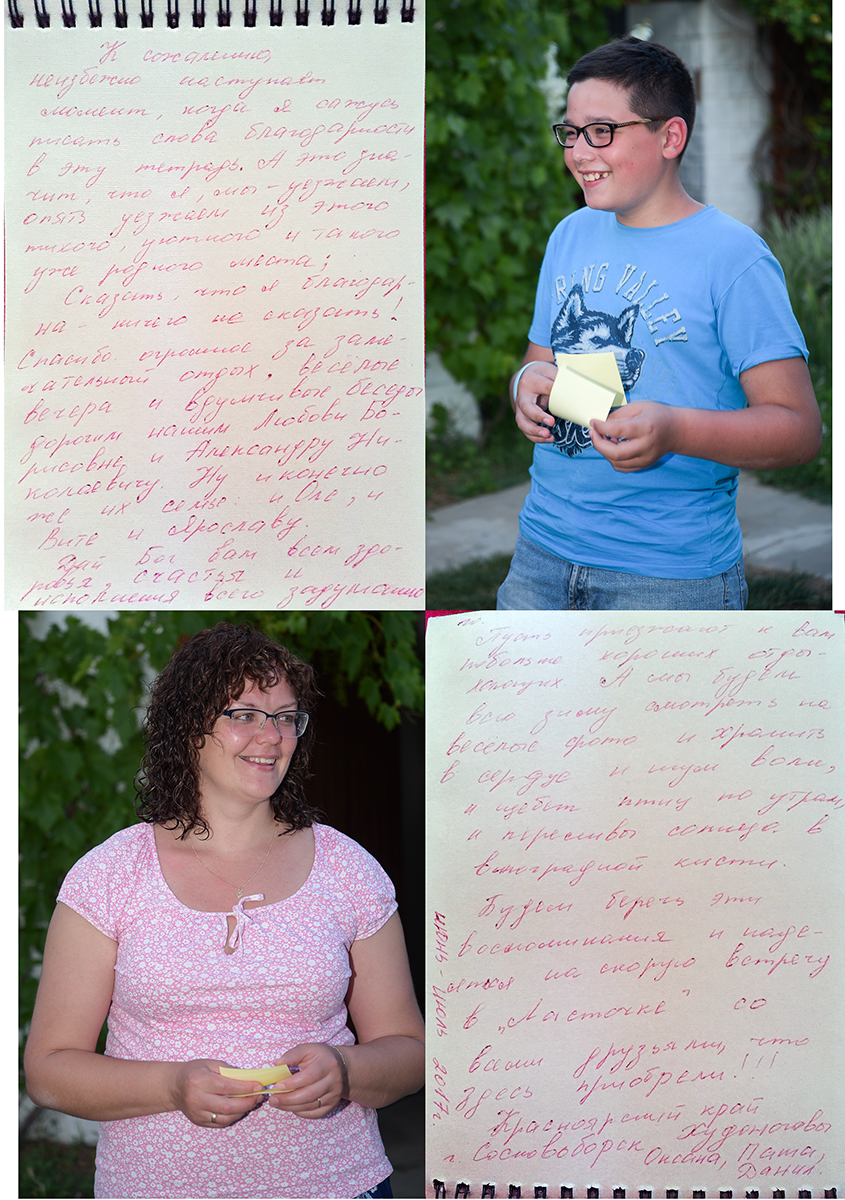 К сожалению,
неизбежно наступает
момент, когда я сажусь
писать слова благодарности
в эту тетрадь. А это зна-
чит, что я, мы - уезжаем,
опять уезжаем из этого
тихого, уютного и такого
уже родного места;
Сказать, что я благодар-
на - ничего не сказать!
Спасибо огромное за заме-
чательный отдых, весёлые
вечера и вдумчивые беседы
дорогим нашим Любови Бо-
рисовне и Александру Ни-
колаевичу. Ну и конечно
же их семье: и Оле, и
Вите и Ярославу.
Дай Бог вам всем здо-
ровья, счастья и
исполнения всего задуманно
RING VALLEY
го.
Пусть приезжают к вам
побольше хороших отды-
хающих. А мы будем
всю зиму смотреть на
весёлые фото и хранить
в сердце и шум волн,
и щебет птиц по утрам,
и переливы солнца в
виноградной кисти.
Будем беречь эти
воспоминания и наде-
яться на скорую встречу
в "Ласточке" со
всеми друзьями, что
здесь приобрели!!!
Красноярский край
г. Сосновоборск Худоноговы
Оксана, Паша,
Данил.
июнь - июль 2017г.